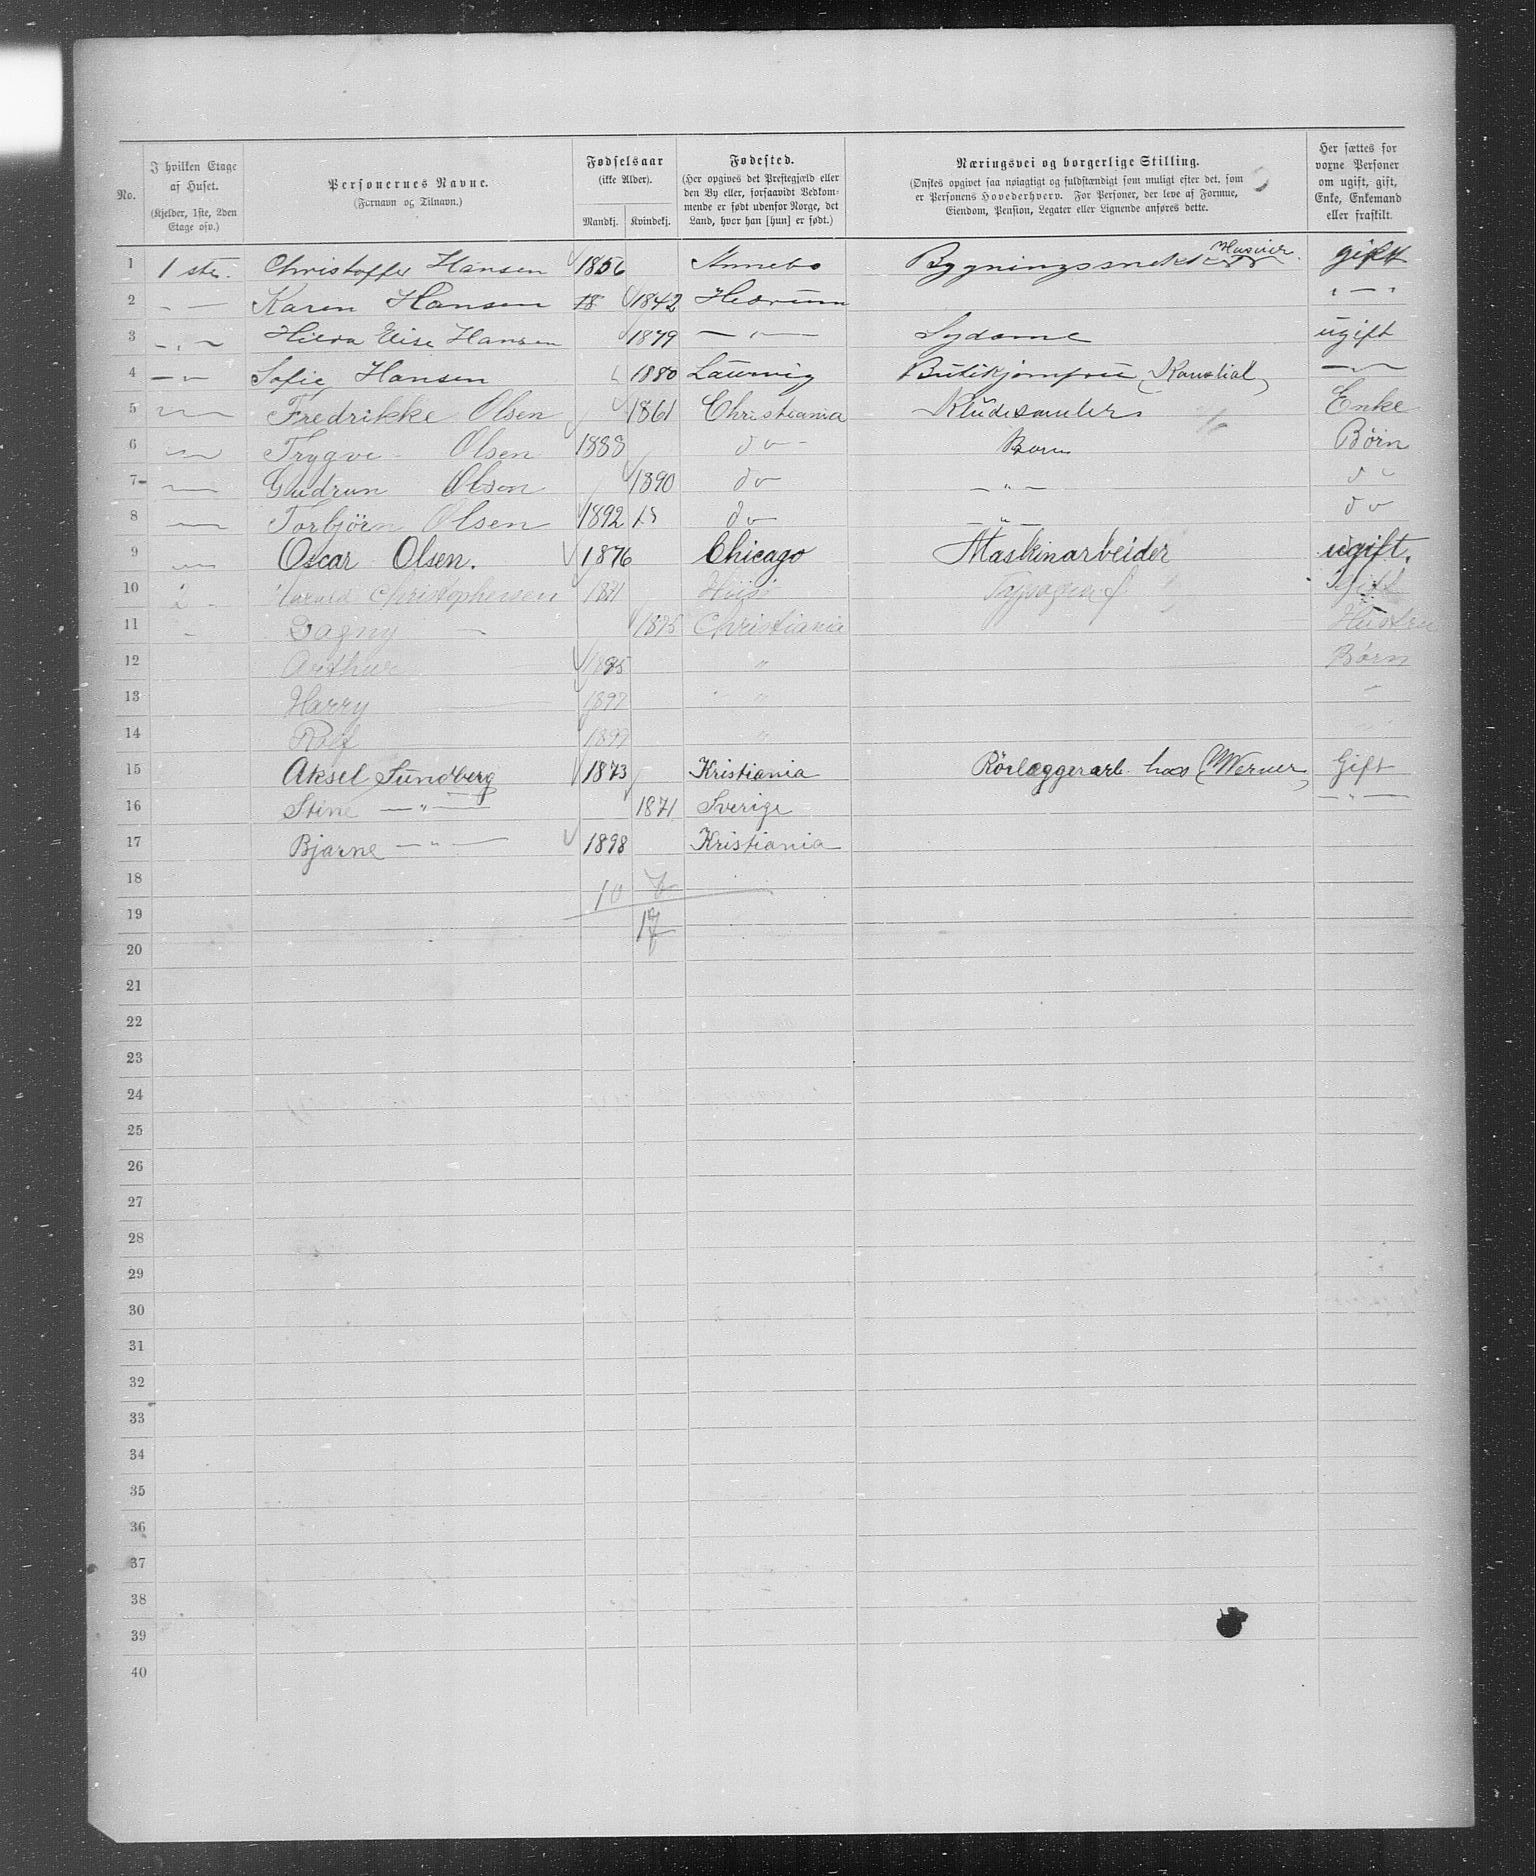 No.
I hvilken Etage af Huset. (Kjelder, 1ste, 2den Etage osv.)
Personernes Navne. (Fornavn og Tilnavn.)
Fødselsaar (ikke Alder). Mandkj. Kvindekj.
Fødested. (Her opgives det Prestegjæld eller den By eller, forsaavidt Vedkommende er født udenfor Norge, det Land, hvor han [hun] er født.)
Næringsvei og borgerlige Stilling. (Ønskes opgivet saa nøiagtigt og fuldstændigt som muligt efter det, som er Personens Hovederhverv. For Personer, der leve af Formue, Eiendom, Pension, Legater eller Lignende anføres dette.)
Her sættes for voxne Personer om ugift, gift, Enke, Enkemand eller fraskilt.
1 1 ste. Christoffer Hansen 1856 Annebo Bygningssnekker gift
2 — Karen Hansen 18 1842 Hedrum " — "
3 — " — Hilda Elise Hansen 1879 — " — Sydame ugift
4 — " Sofie Hansen 1880 Laurvig Butikjomfru — " —
5 — Fredrikke Olsen 1861 Christiania Kludesamler Enke
6 — Trygve Olsen 1888 do - Barn Børn
7 — Gudrun Olsen 1890 do — " — do
8 — Torbjörn Olsen 1892 do — " — do
9 — Oscar Olsen. 1876 Chicago Maskinarbeider ugift.
10 2 Harald Christophersen 1871 Gift
11 " Dagny — 1875 Christiania Hustru
12 Arthur 1895 " Børn
13 Harry — 1897 " "
14 Rolf 1899 " "
15 Aksel Sundberg 1873 Kristiania Rörlæggerarb. hos (Werner) Gift
16 Stine — " — 1871 Sverige — " —
17 Bjarne — " — 1898 Kristiania
18 10 7
19 17
20
21
22
23
24
25
26
27
28
29
30
31
32
33
34
35
36
37
38
39
40